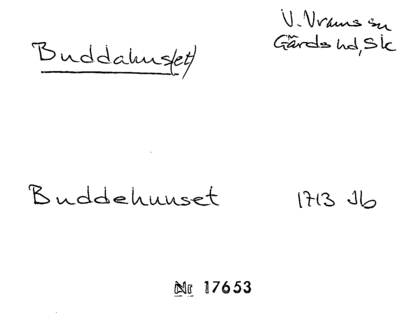 Buddahus(et)
V. Vrams sn
Gärds hd, Sk
Buddehuuset 1713 Jb
Nr 17653